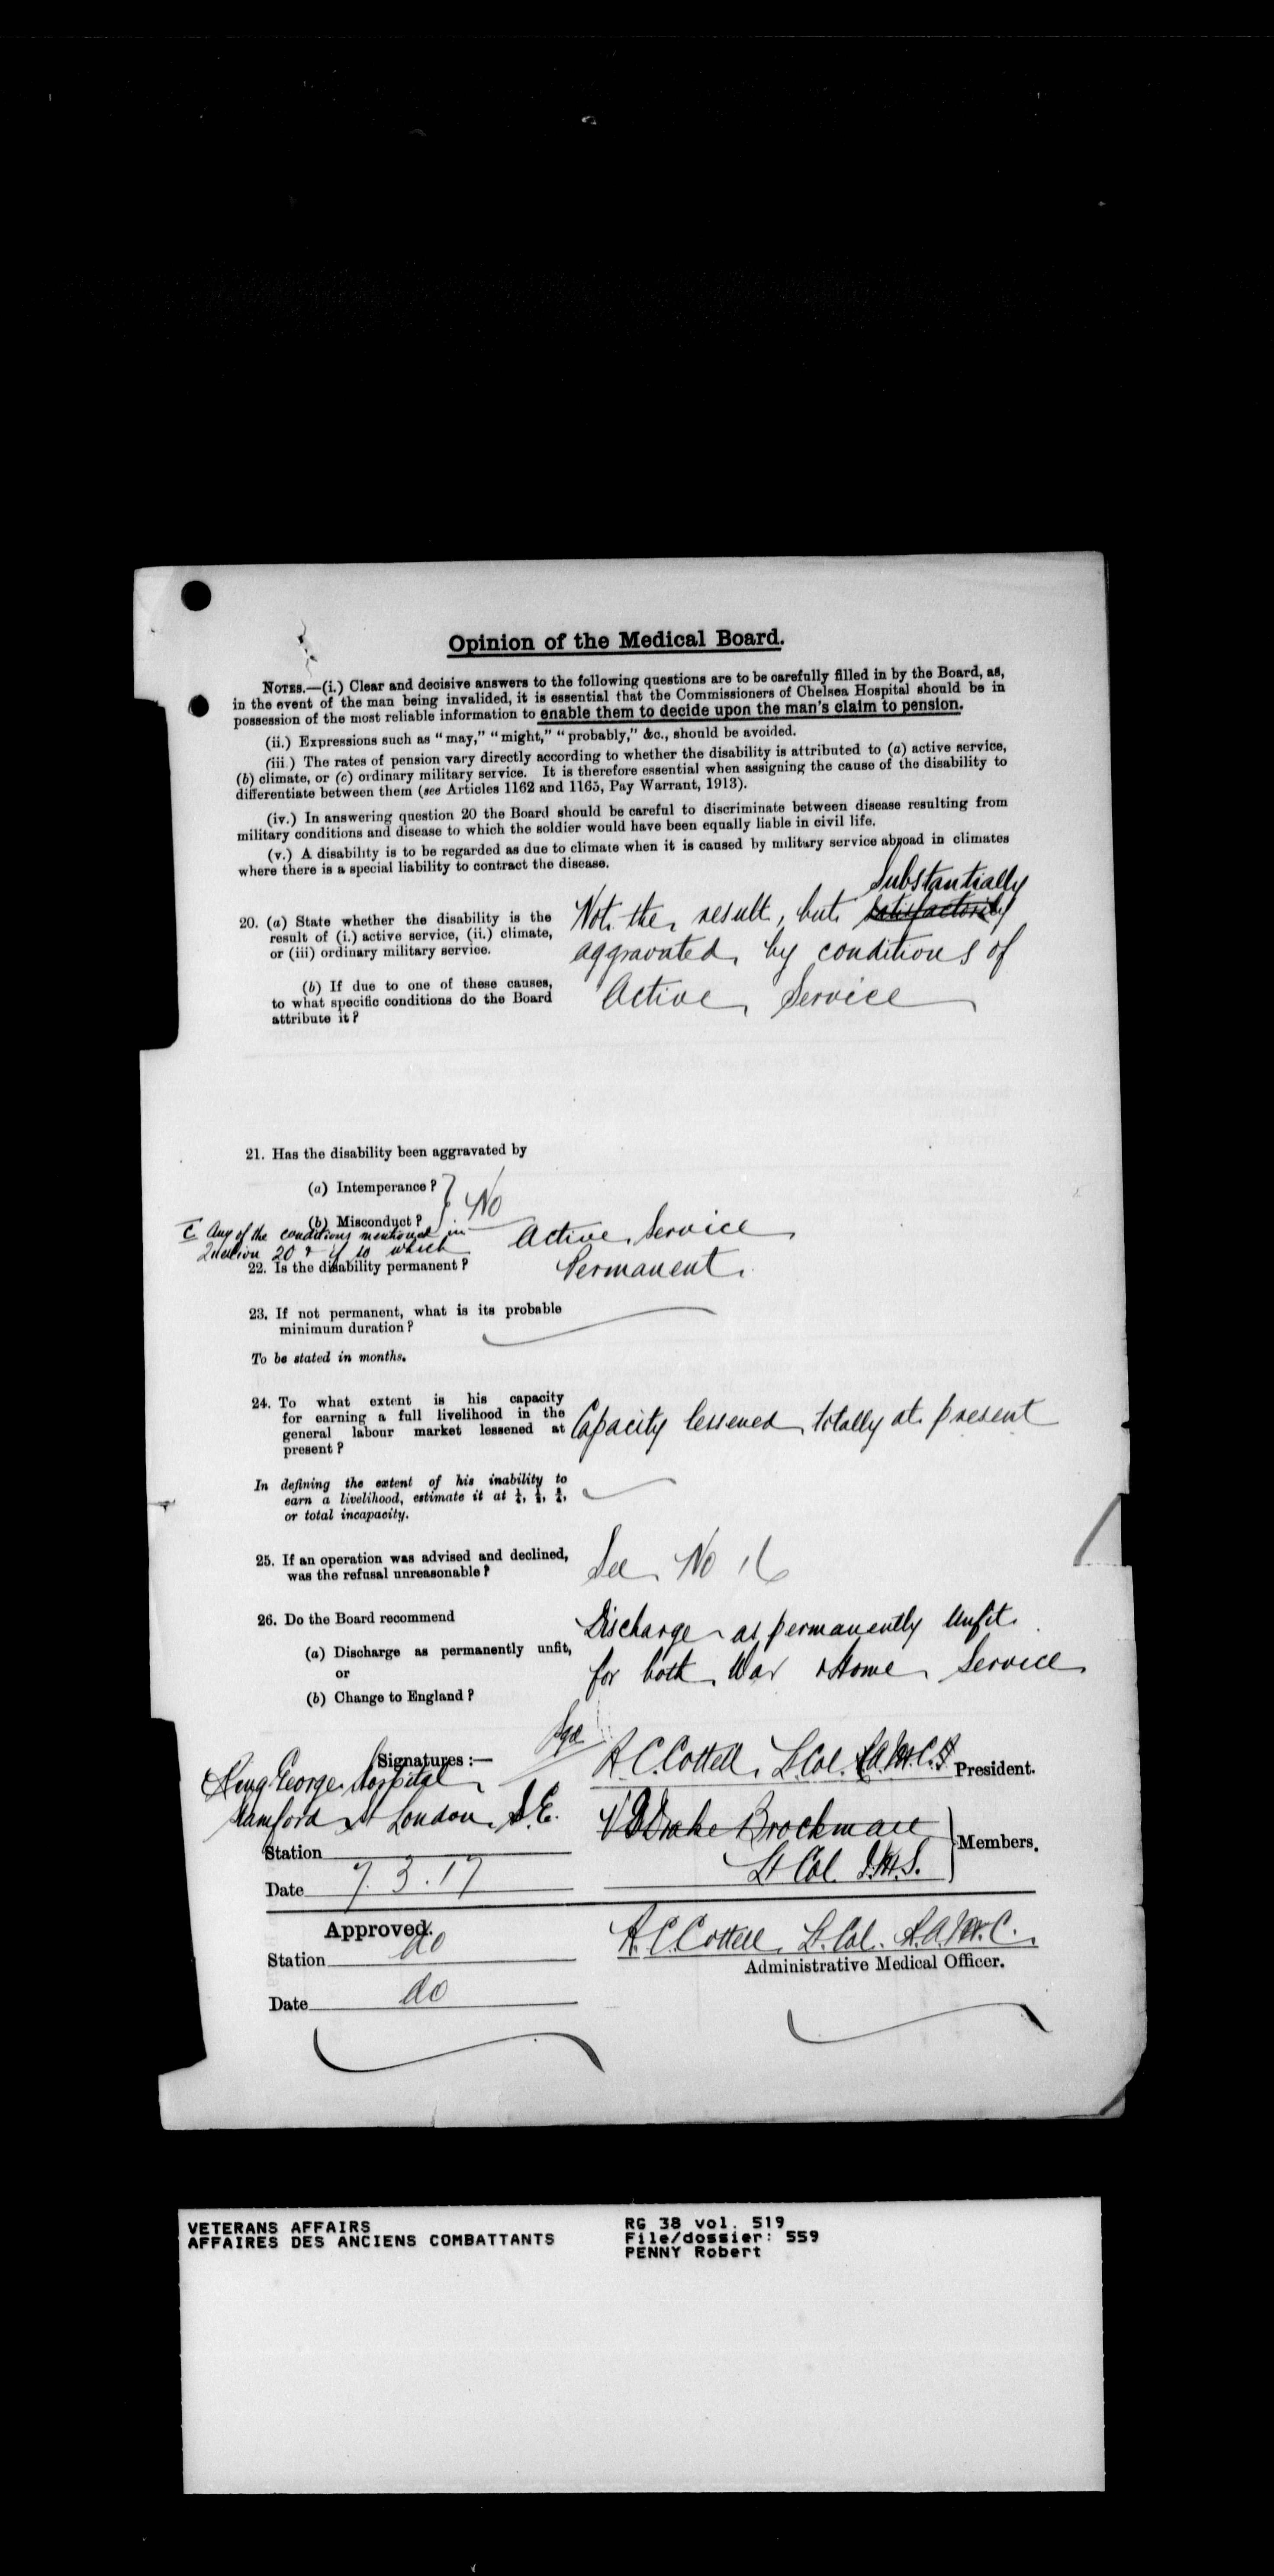 Opinion of the Medical Board.
NOTES.—(i.) Clear and decisive answers to the following questions are to be carefully filled in by the Board, as,
in the event of the man being invalided, it is essential that the Commissioners of Chelsea Hospital should be in
possession of the most reliable information to enable them to decide upon the man's claim to pension.
(ii.) Expressions such as "may," "might," "probably," &c., should be avoided.
(iii.) The rates of pension vary directly according to whether the disability is attributed to (a) active service,
(b) climate, or (c) ordinary military service. It is therefore essential when assigning the cause of the disability to
differentiate between them (see Articles 1162 and 1165, Pay Warrant, 1913).
(iv.) In answering question 20 the Board should be careful to discriminate between disease resulting from
military conditions and disease to which the soldier would have been equally liable in civil life.
(v.) A disability is to be regarded as due to climate when it is caused by military service abroad in climates
where there is a special liability to contract the disease.
20. (a) State whether the disability is the
result of (i.) active service, (ii.) climate,
or (iii) ordinary military service.
(b) If due to one of these causes,
to what specific conditions do the Board
attribute it?
Substantially
Not the result, but satisfactorily
aggravated by conditions of
Active Service
21. Has the disability been aggravated by
(a) Intemperance?
(b) Misconduct?
No
C. Any of the conditions mentioned in
Question 20 & if so which
Active Service
22. Is the disability permanent?
Permanent.
23. If not permanent, what is its probable
minimum duration?
To be stated in months.
24. To what extent is his capacity
for earning a full livelihood in the
general labour market lessened at
present?
Capacity lessened totally at present
In defining the extent of his inability to
earn a livelihood, estimate it at ¼, ½, ¾,
or total incapacity.
25. If an operation was advised and declined,
was the refusal unreasonable?
See No 16
26. Do the Board recommend
(a) Discharge as permanently unfit,
or
(b) Change to England?
Discharge as permanently Unfit
for both War & Home Service
Signatures:—
Sgd
A.C. Cottell, Lt Col. R.A.M.C. President.
King George Hospital
Stamford St London, S.E.
Drake Brockman
Lt Col. I.M.S.
Members.
Station
Date 7.3.17
Approved.
Station do
Date do
A.C. Cottell, Lt. Col. R.A.M.C.
Administrative Medical Officer.
VETERANS AFFAIRS
AFFAIRES DES ANCIENS COMBATTANTS
RG 38 vol. 519
File/dossier: 559
PENNY Robert